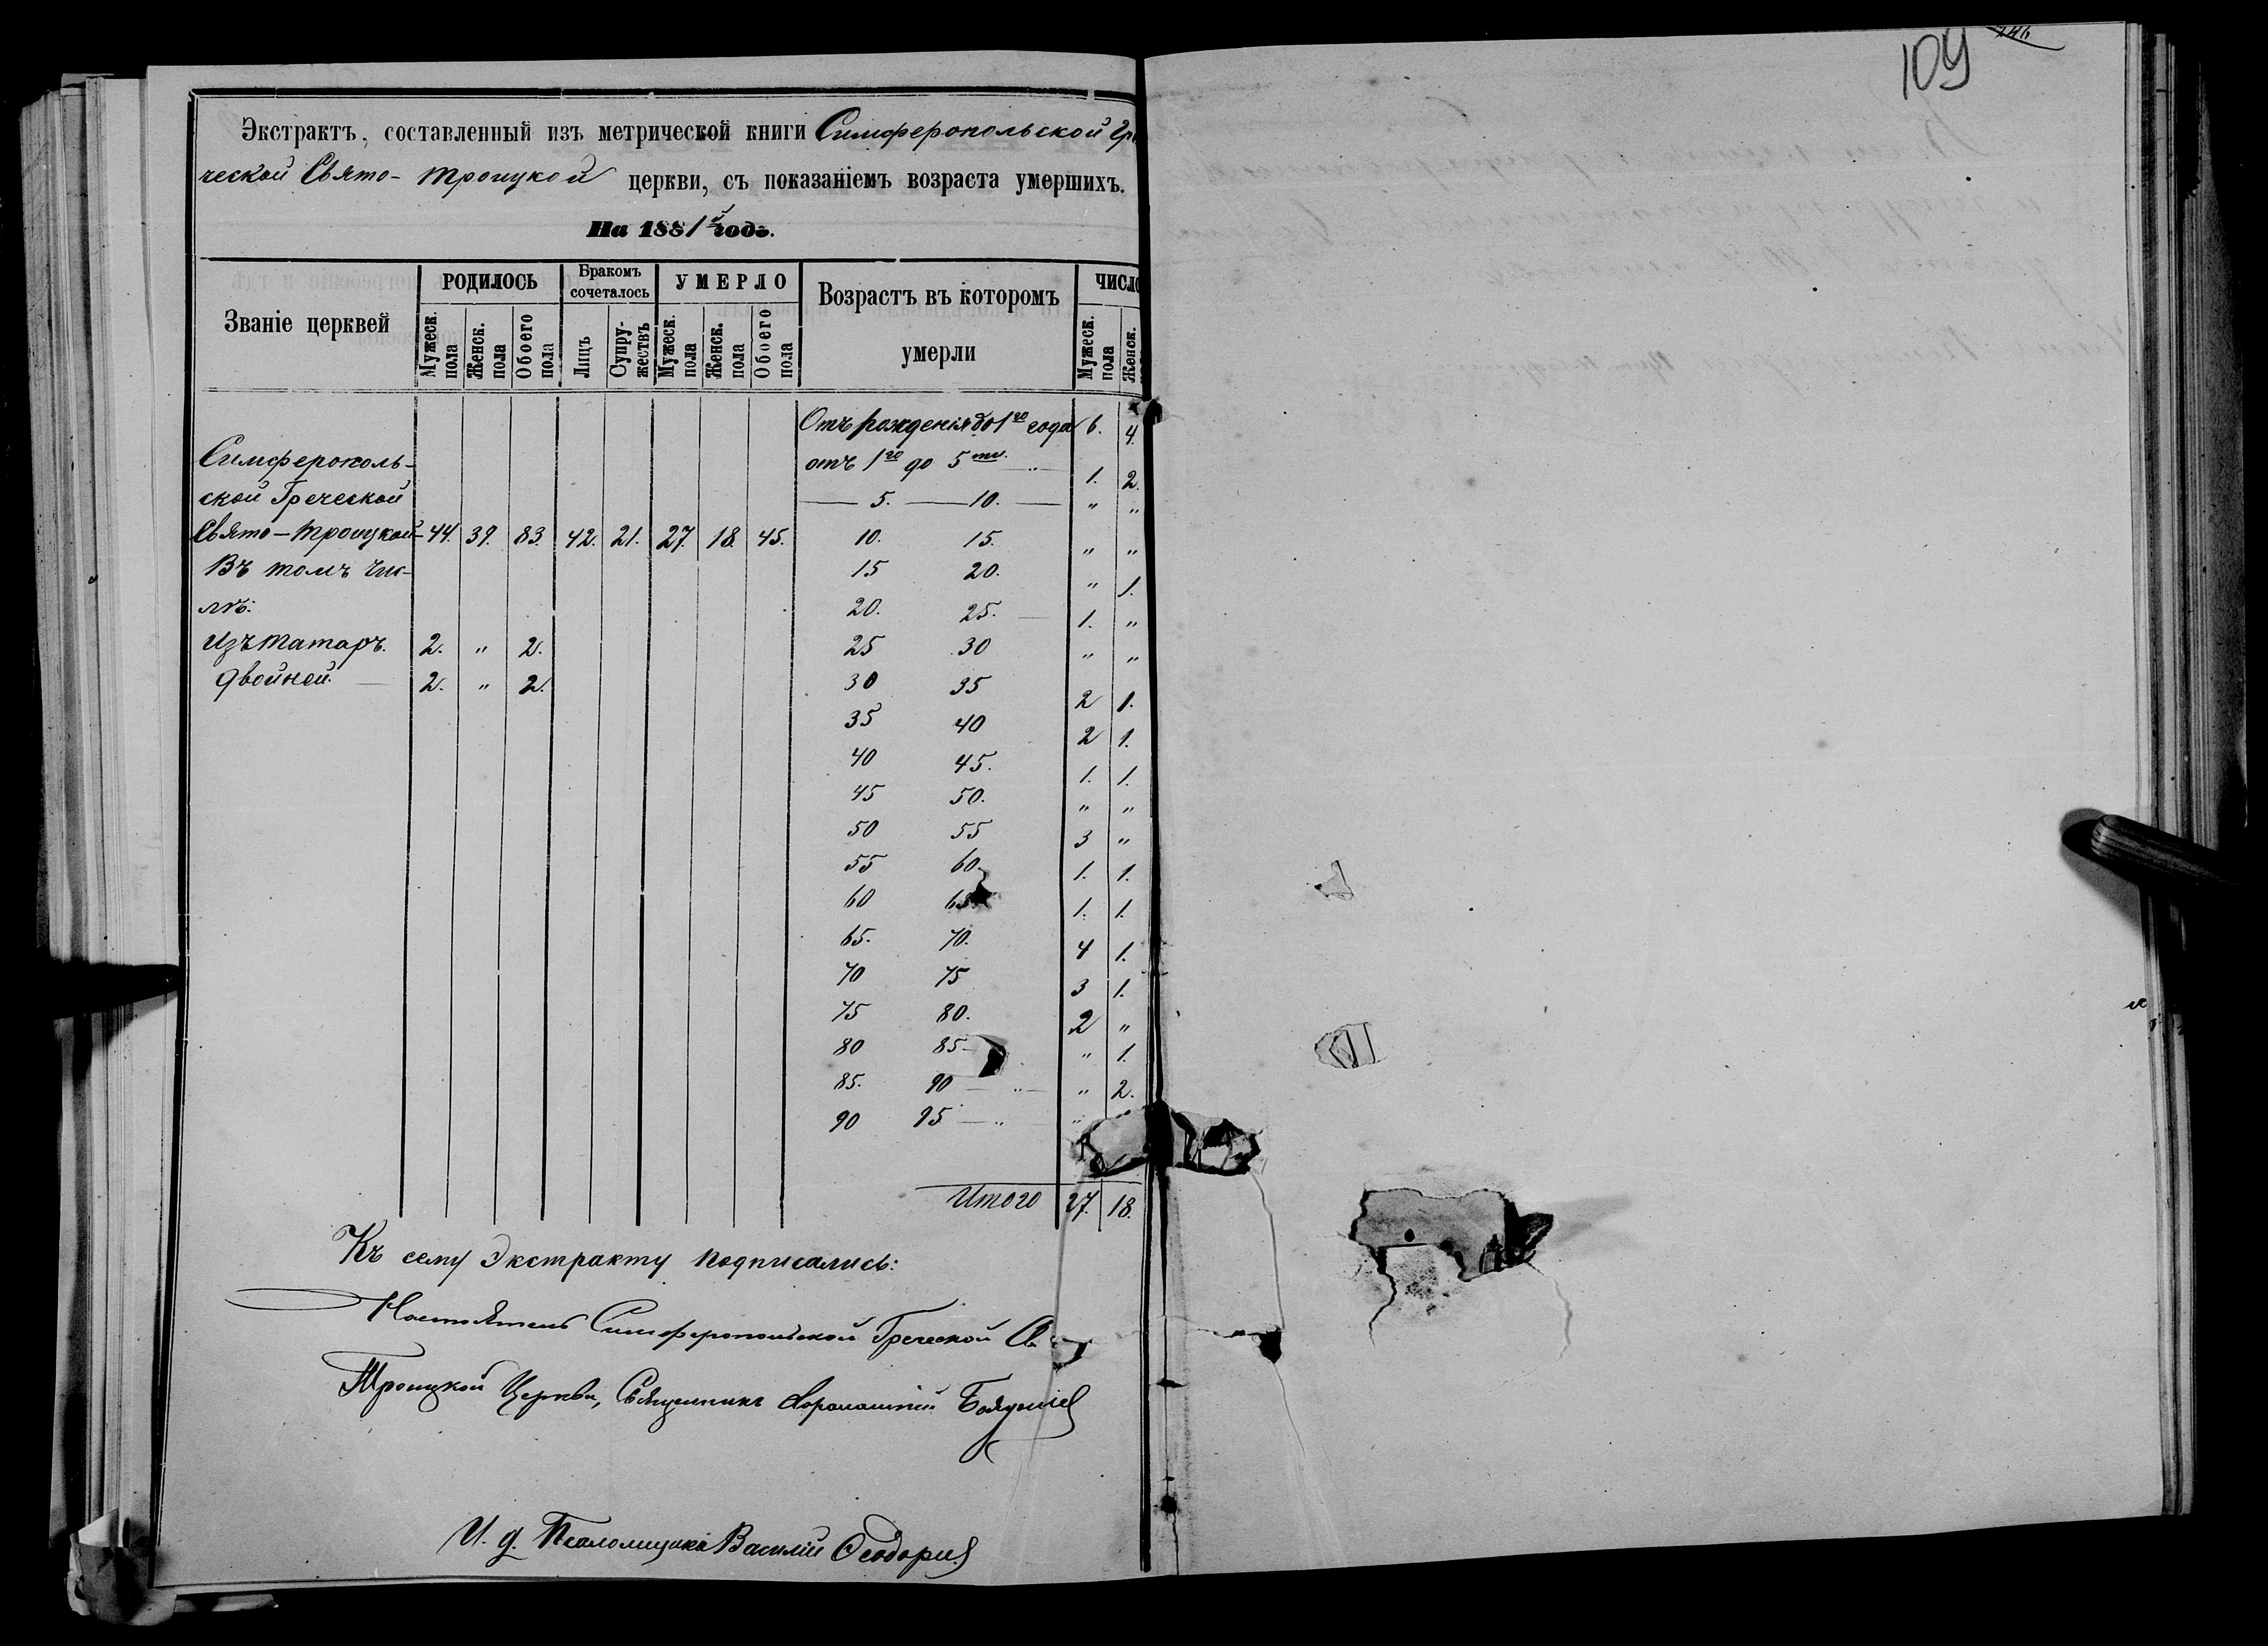 109
Экстрактъ, составленный изъ метрической книги Симферопольской Гре
ческой Свято-Троицкой церкви, съ показаніемъ возраста умершихъ.
На 1881й годъ.
Званіе церквей | РОДИЛОСЬ | Бракомъ сочеталось | УМЕРЛО | Возрастъ въ которомъ умерли | ЧИСЛО
Мужеск. пола | Женск. пола | Обоего пола | Лицъ | Супружествъ | Мужеск. пола | Женск. пола | Обоего пола | Мужеск. пола | Женск.
Отъ рожденія до 1го года 6. 4.
Симферополь-
отъ 1го до 5ти " 1. 2.
ской Греческой
— 5. — 10. — " "
Свято-Троицкой 44. 39. 83. 42. 21. 27. 18. 45.
10. 15. " "
Въ томъ чис-
15 20. " 1.
лѣ:
20. 25. — 1. "
Изъ татаръ. 2. " 2.
25 30 " "
Двойней. — 2. " 2.
30 35 2 1.
35 40 2 1.
40 45. 1. 1.
45 50. " "
50 55 3 "
55 60. 1. 1.
60 65. 1. 1.
65. 70. 4 1.
70 75 3 1.
75 80. 2 "
80 85- " 1.
85. 90 — " — " 2.
90 95 — " — "
Итого 27. 18.
Къ сему Экстракту подписались:
Настоятель Симферопольской Греческой Св.
Троицкой Церкви, Священникъ
И. д. Псаломщика Василій